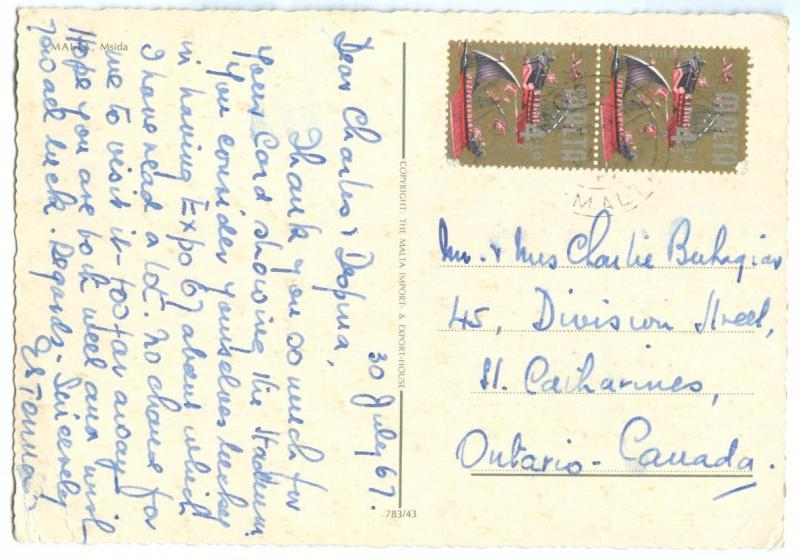 MALTA, Msida
30 July 67.
Dear Charles & Despina,
Thank you so much for
your Card showing the Stadium.
You consider yourselves lucky
in having Expo 67 about which
I have read a lot. No chance for
me to visit it - too far away.
Hope you are both well and wish
you all luck. Regards - Sincerely
COPYRIGHT: THE MALTA IMPORT- & EXPORT-HOUSE
783/43
MALTA
MALTA
MALTA
Mr. & Mrs Charlie Buhagiar
45, Division Street,
St. Catharines,
Ontario - Canada.